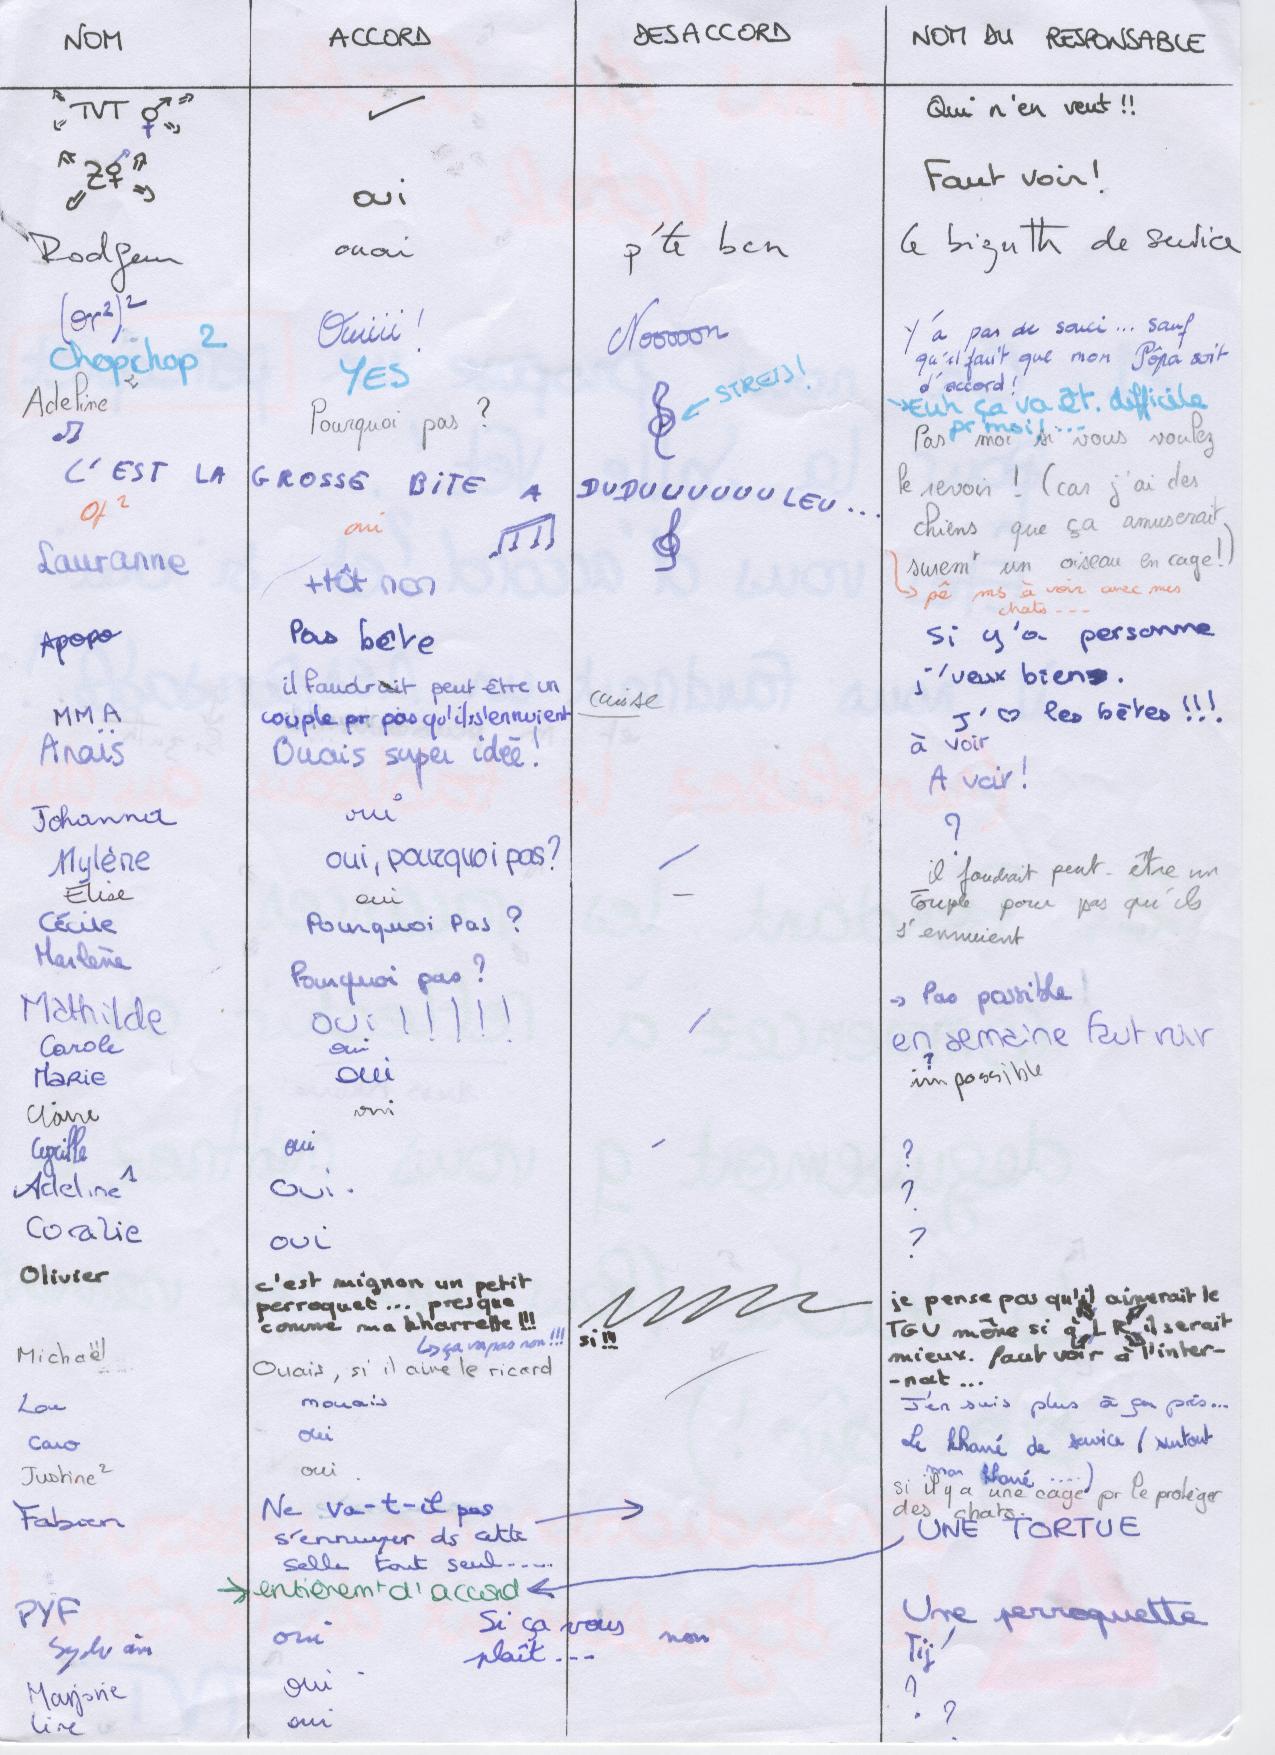 NOM ACCORD DESACCORD NOM DU RESPONSABLE
TVT Qui n'en veut !!
Z oui Faut voir !
Rodgeur ouai p'te ben le bizuth de service
(Or²)² Ouiiii ! Nooooon Y'a pas de souci... sauf
qu'il faut que mon Pôpa soit
d'accord !
Chopchop² YES STRESS !
→ Euh ça va êt. difficile
pr moi !...
Adeline² Pourquoi pas ? Pas moi si vous voulez
le revoir ! (car j'ai des
chiens que ça amuserait
suremt un oiseau en cage !)
C'EST LA GROSSE BITE A DUDUUUUUULEU...
Of² oui
↳ pê ms à voir avec mes
chats ---
Lauranne +tôt non
Apopo Pas bête Si y'a personne
j'veux bien.
J'♡ les bêtes !!!
MMA il faudrait peut être un
couple pr pas qu'ils s'ennuient à voir
caisse
Anaïs Ouais super idée ! A voir !
Johanna oui ?
Mylène oui, pourquoi pas ?
Elise oui – il faudrait peut-être un
couple pour pas qu'ils
s'ennuient
Cécile Pourquoi Pas ?
Marlène Pourquoi pas ? → Pas possible !
Mathilde OUI ! ! ! ! ! ! en semaine faut voir
Carole oui ?
MARIE OUI impossible
Claire oui
Cyrille oui ?
Adeline¹ Oui. ?
Coralie OUI ?
Olivier c'est mignon un petit
perroquet... presque
comme ma kharrette !!!
↳ ça va pas non !!!
si !!!
je pense pas qu'il aimerait le
TGV même si à LR il serait
mieux. faut voir à l'inter-
-nat...
Michaël Ouais, si il aime le ricard
Lou mouais J'en suis plus à ça près...
Caro oui Le kharré de service (surtout
mon kharré ....)
Justine² oui. si il y a une cage pr le protéger
des chats...
Fabien Ne va-t-il pas
s'ennuyer ds cette
salle tout seul.....
UNE TORTUE
→ entièremt d'accord
PYF Si ça vous
plaît... Une perroquette
Sylvain oui non Tij'
Marjorie oui ?
Line oui ?